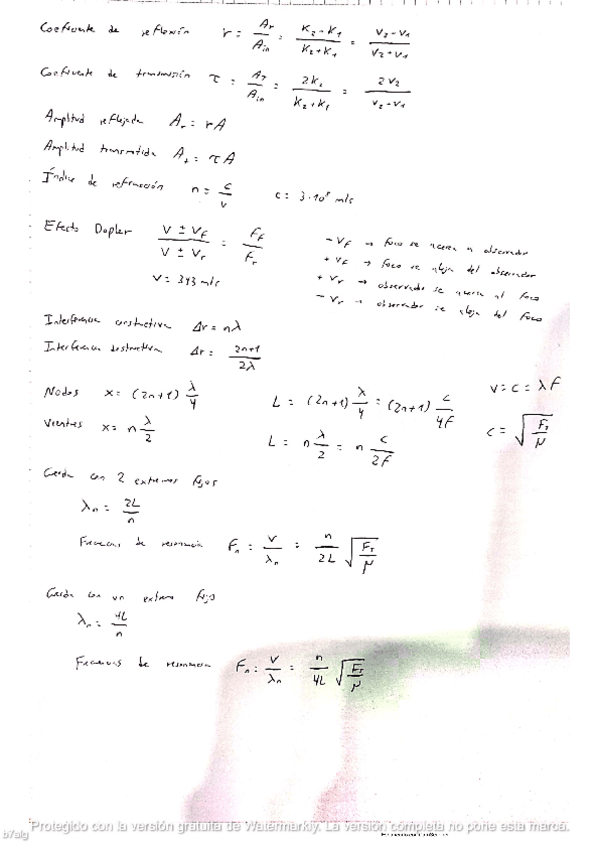 Coeficiente de reflexión r = Ar/Ain = (K2 - K1)/(K2 + K1) = (v2 - v1)/(v2 + v1)
Coeficiente de transmisión τ = AT/Ain = 2K2/(K2 + K1) = 2v2/(v2 - v1)
Amplitud reflejada Ar = rA
Amplitud transmitida At = τA
Índice de refracción n = c/v c = 3·10⁸ m/s
Efecto Dopler (V ± VF)/(V ± Vr) = FF/Fr
- VF → Foco se acerca a observador
+ VF → Foco se aleja del observador
+ Vr → observador se acerca al foco
- Vr → observador se aleja del foco
V = 343 m/s
Interferencia constructiva Δr = nλ
Interferencia destructiva Δr = (2n+1)/2λ
Nodos x = (2n+1) λ/4 L = (2n+1) λ/4 = (2n+1) c/4F v = c = λF
Vientres x = n λ/2 L = n λ/2 = n c/2F c = √(FT/μ)
Cuerda con 2 extremos fijos
λn = 2L/n
Frecuencias de resonancia Fn = v/λn = n/2L √(FT/μ)
Cuerda con un extremo fijo
λn = 4L/n
Frecuencias de resonancia Fn = v/λn = n/4L √(FT/μ)
Protegido con la versión gratuita de Watermarkly. La versión completa no pone esta marca.
b7alg